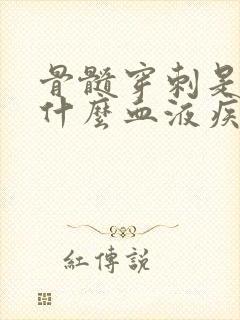 骨髓穿刺是
什麼血液疾
紅傳説